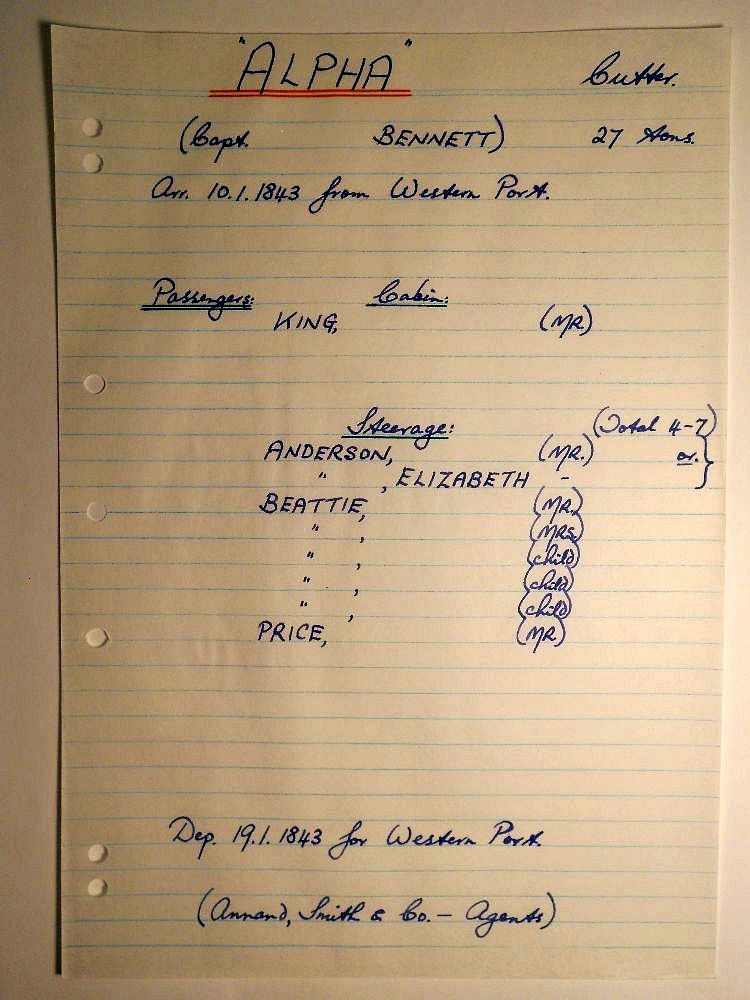 "ALPHA" Cutter.
(Capt. BENNETT) 27 tons.
Arr. 10.1.1843 from Western Port.
Passengers: Cabin:
KING, (MR)
Steerage: (Total 4-7)
ANDERSON, (MR.) or. }
" , ELIZABETH -
BEATTIE, (MR.)
" , (MRS.)
" , (child)
" , (child)
" , (child)
PRICE, (MR)
Dep. 19.1.1843 for Western Port.
(Annand, Smith & Co. - Agents)